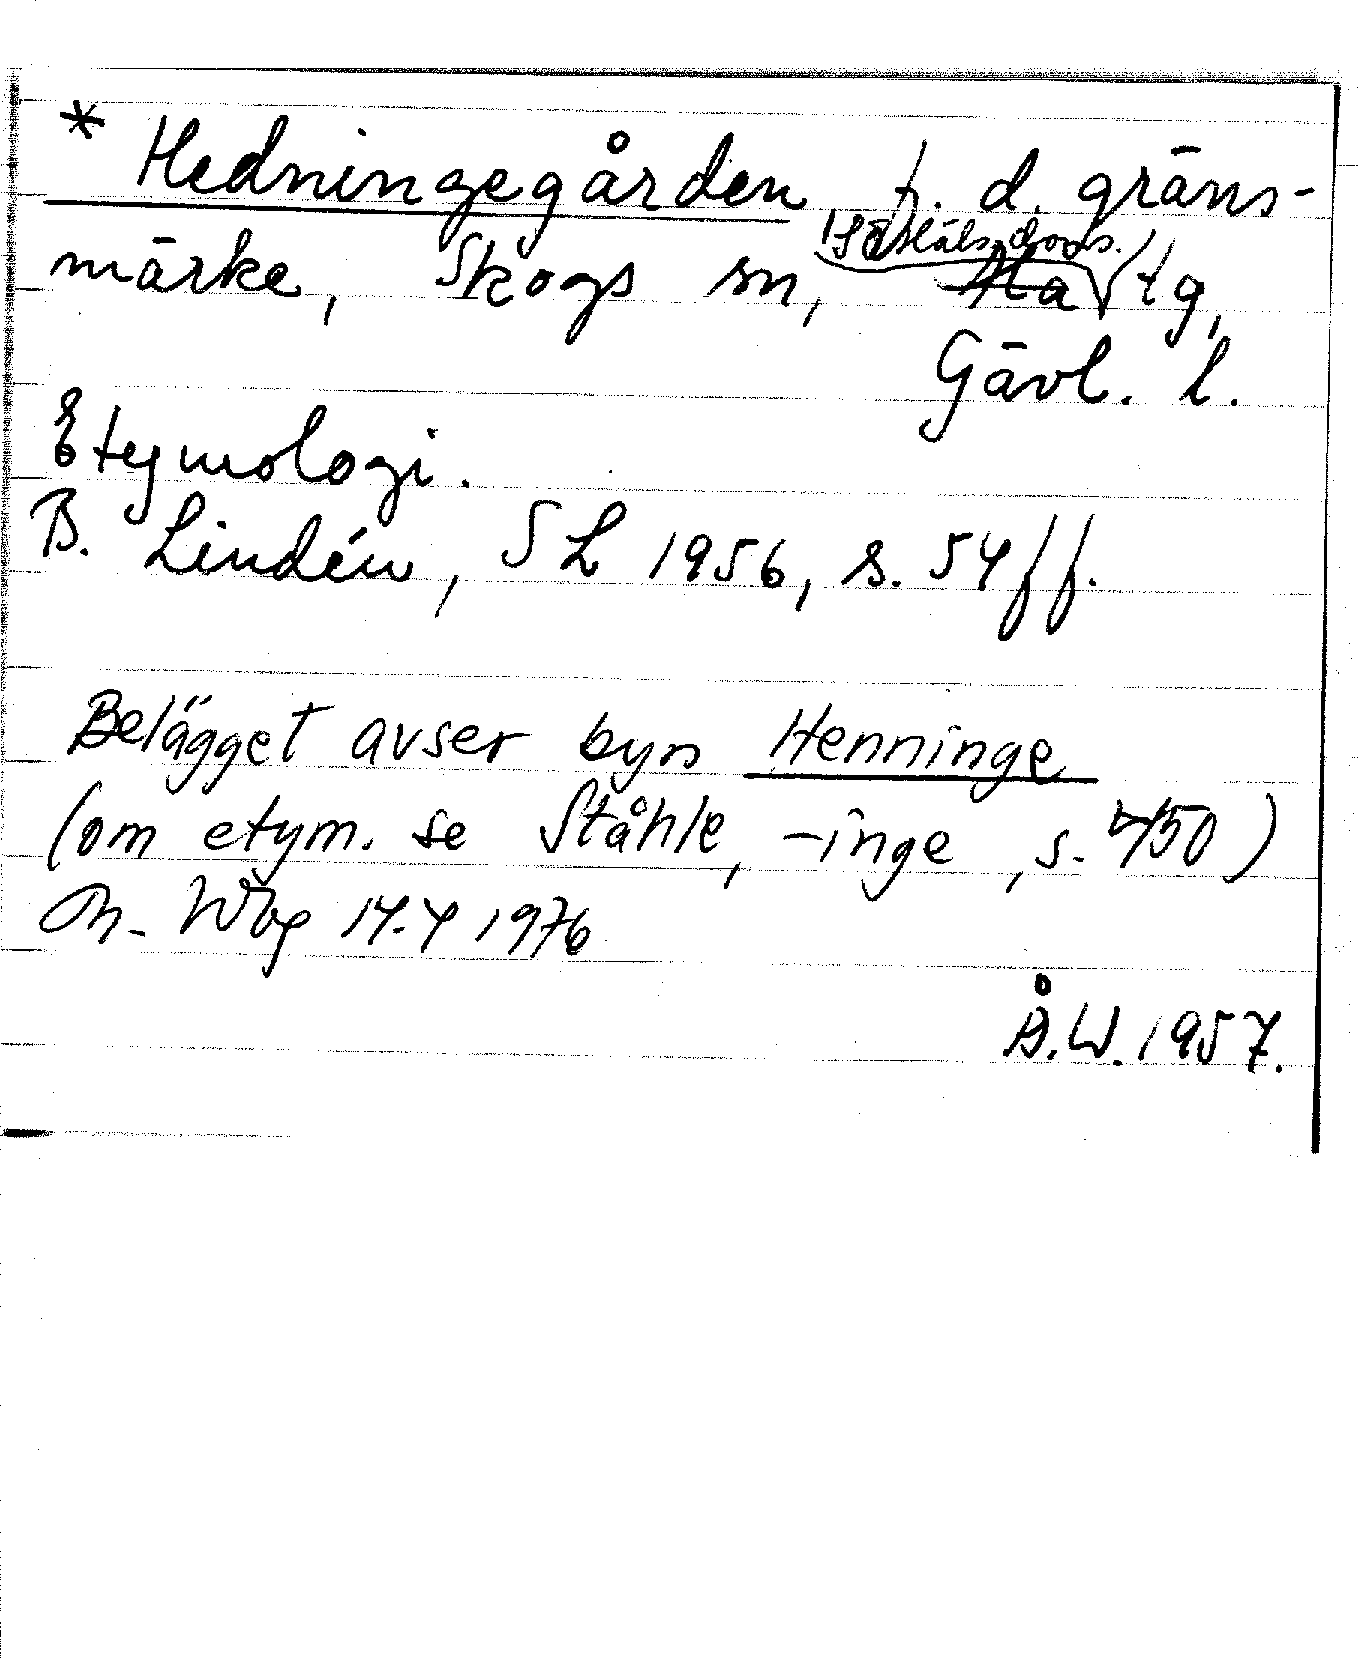 * Hedningegården, f. d. gräns-
märke, Skogs sn, Hälsdoms. tg,
Gävl. l.
Etymologi.
B. Lindén, SL 1956, s. 54 ff.
Belägget avser byn Henninge
(om etym. se Ståhle, -inge, s. 450)
Wbg 14.4 1976
Å.W. 1957.